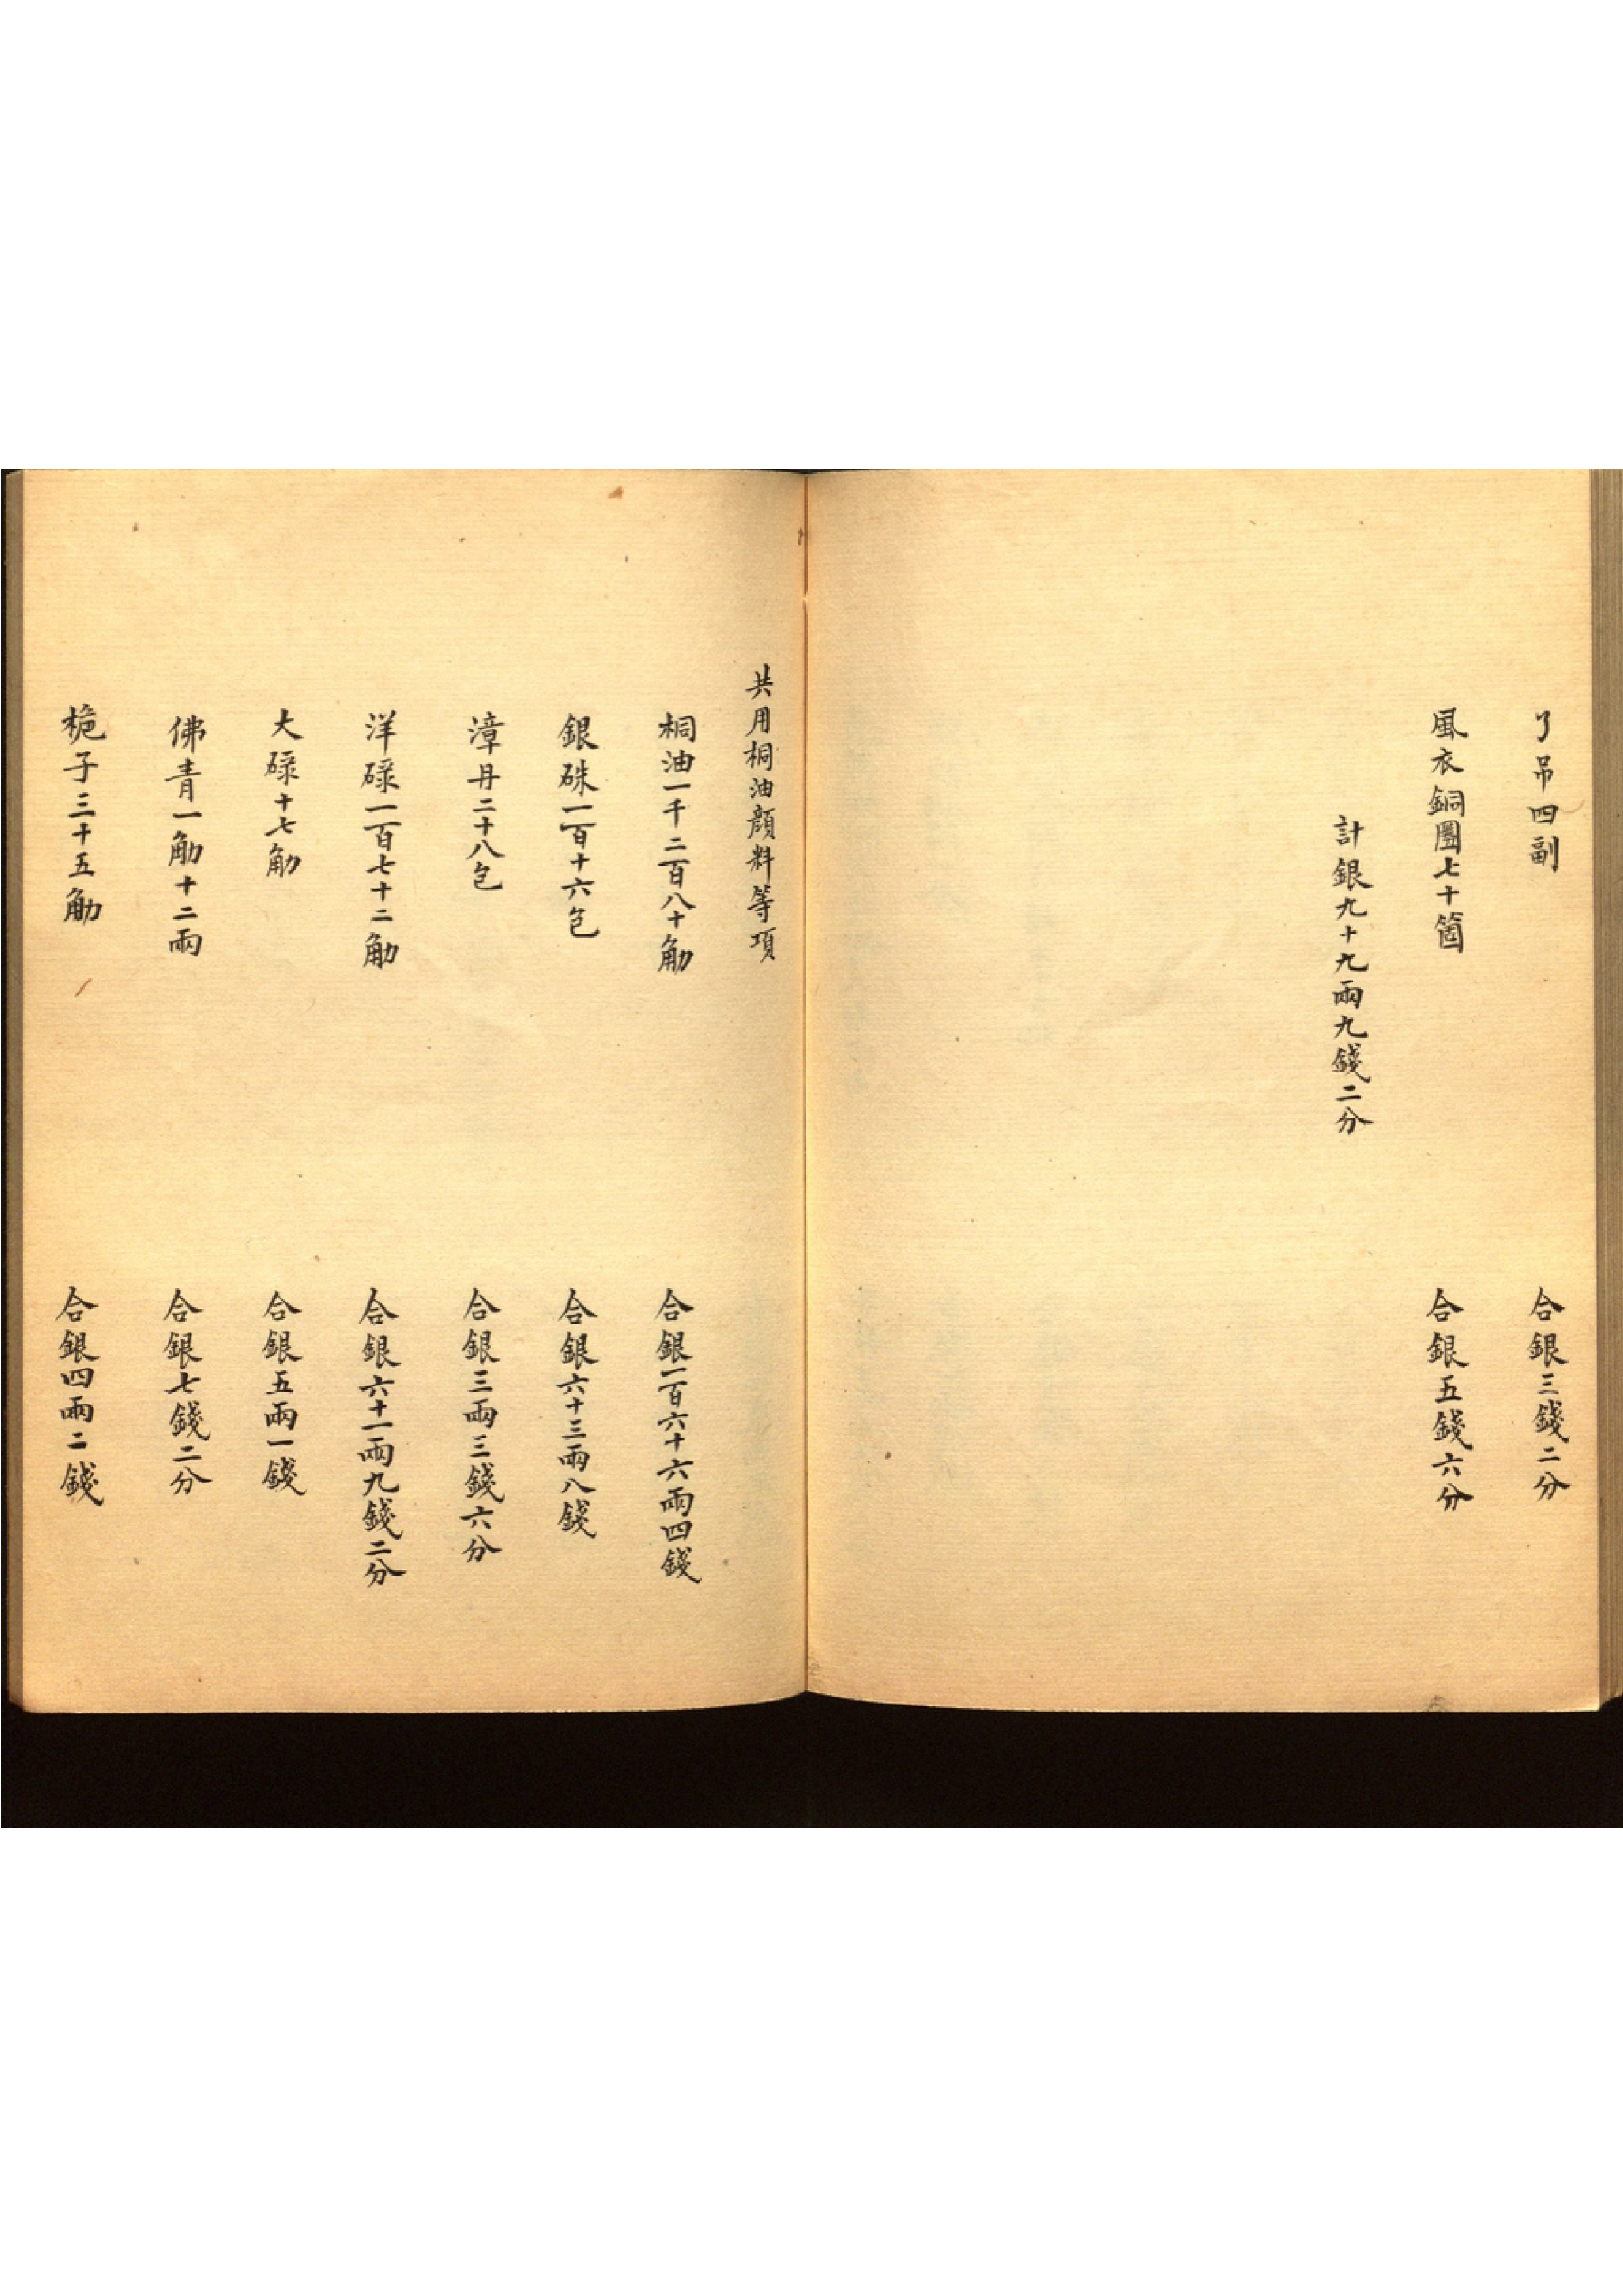 了吊四副　合銀三錢二分
風衣銅圈七十箇　合銀五錢六分
計銀九十九兩九錢二分
共用桐油顔料等項
桐油一千二百八十觔　合銀一百六十六兩四錢
銀硃一百十六包　合銀六十三兩八錢
漳丹二十八包　合銀三兩三錢六分
洋碌一百七十二觔　合銀六十一兩九錢二分
大碌十七觔　合銀五兩一錢
佛青一觔十二兩　合銀七錢二分
梔子三十五觔　合銀四兩二錢